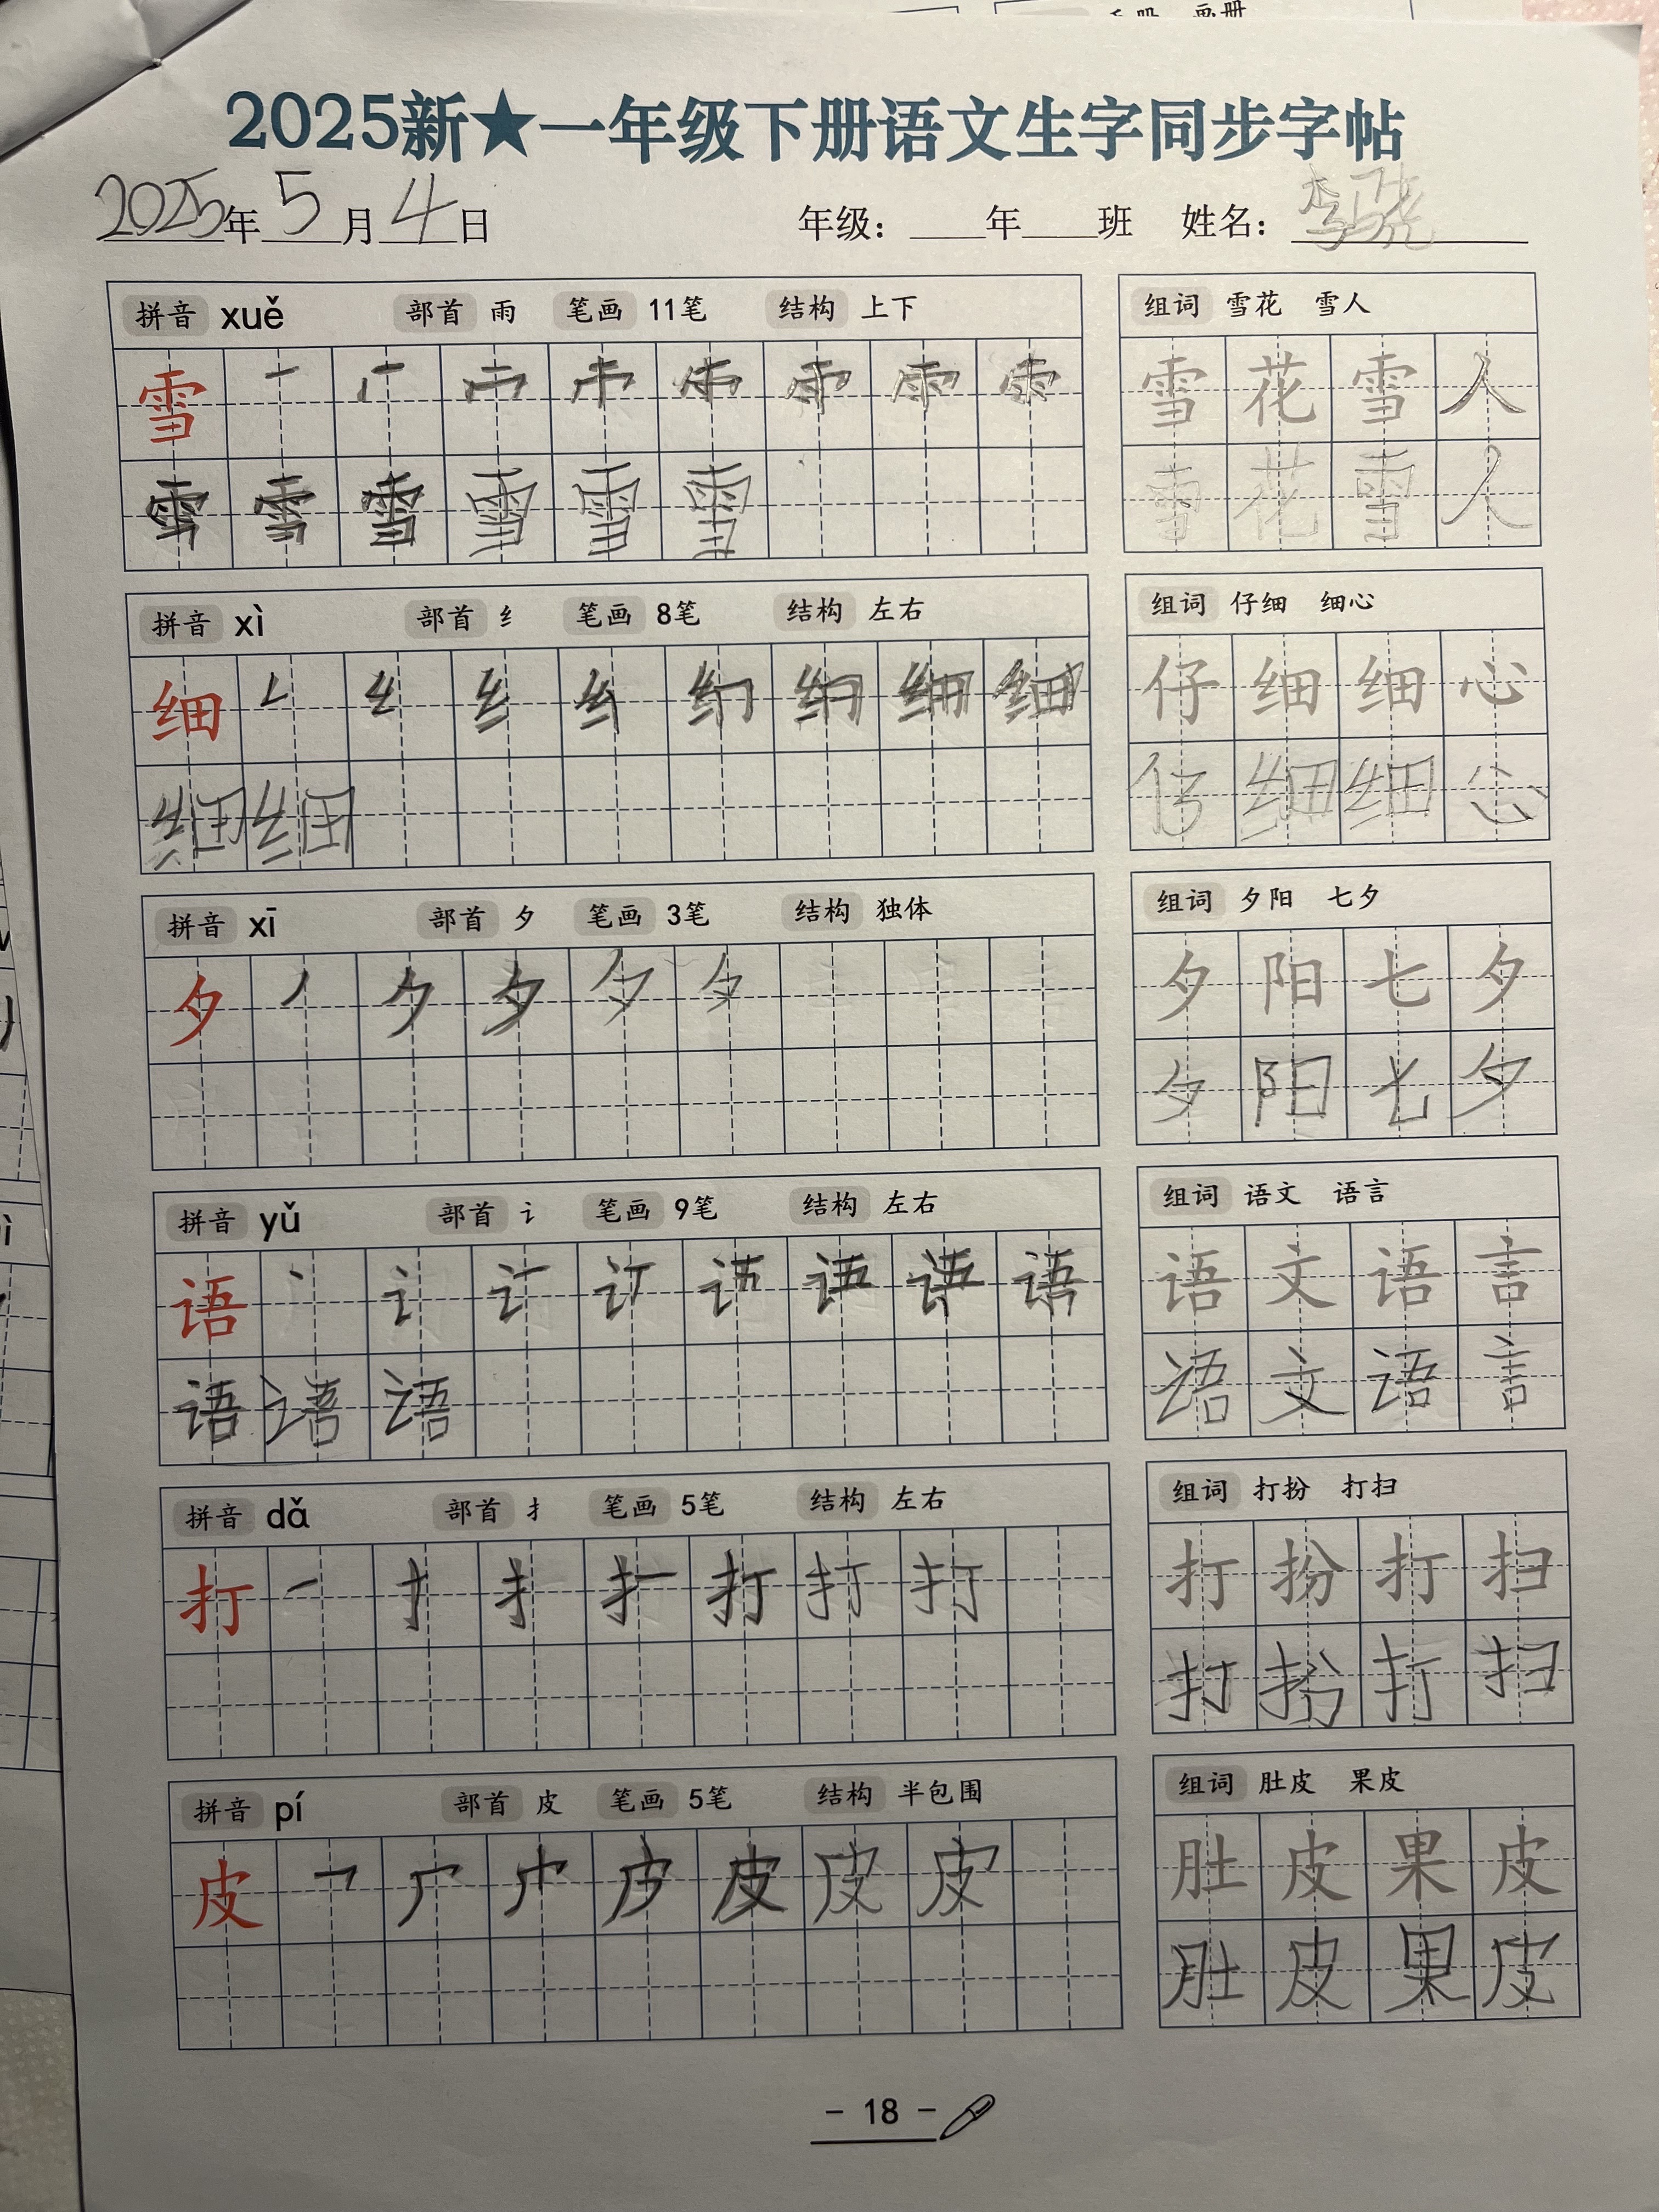 2025新★一年级下册语文生字同步字帖
2025年5月4日 年级：____年____班 姓名：李骁
拼音 xuě 部首 雨 笔画 11笔 结构 上下
雪
雪 雪 雪 雪 雪 雪
组词 雪花 雪人
雪 花 雪 人
雪 花 雪 人
拼音 xì 部首 纟 笔画 8笔 结构 左右
细 纟 细
细 细
组词 仔细 细心
仔 细 细 心
仔 细 细 心
拼音 xī 部首 夕 笔画 3笔 结构 独体
夕 丿 ク 夕 夕 夕
组词 夕阳 七夕
夕 阳 七 夕
夕 阳 七 夕
拼音 yǔ 部首 讠 笔画 9笔 结构 左右
语 丶 讠 语
语 语 语
组词 语文 语言
语 文 语 言
语 文 语 言
拼音 dǎ 部首 扌 笔画 5笔 结构 左右
打 一 扌 打 打 打
组词 打扮 打扫
打 扮 打 扫
打 扮 打 扫
拼音 pí 部首 皮 笔画 5笔 结构 半包围
皮 皮 皮 皮
组词 肚皮 果皮
肚 皮 果 皮
肚 皮 果 皮
- 18 -